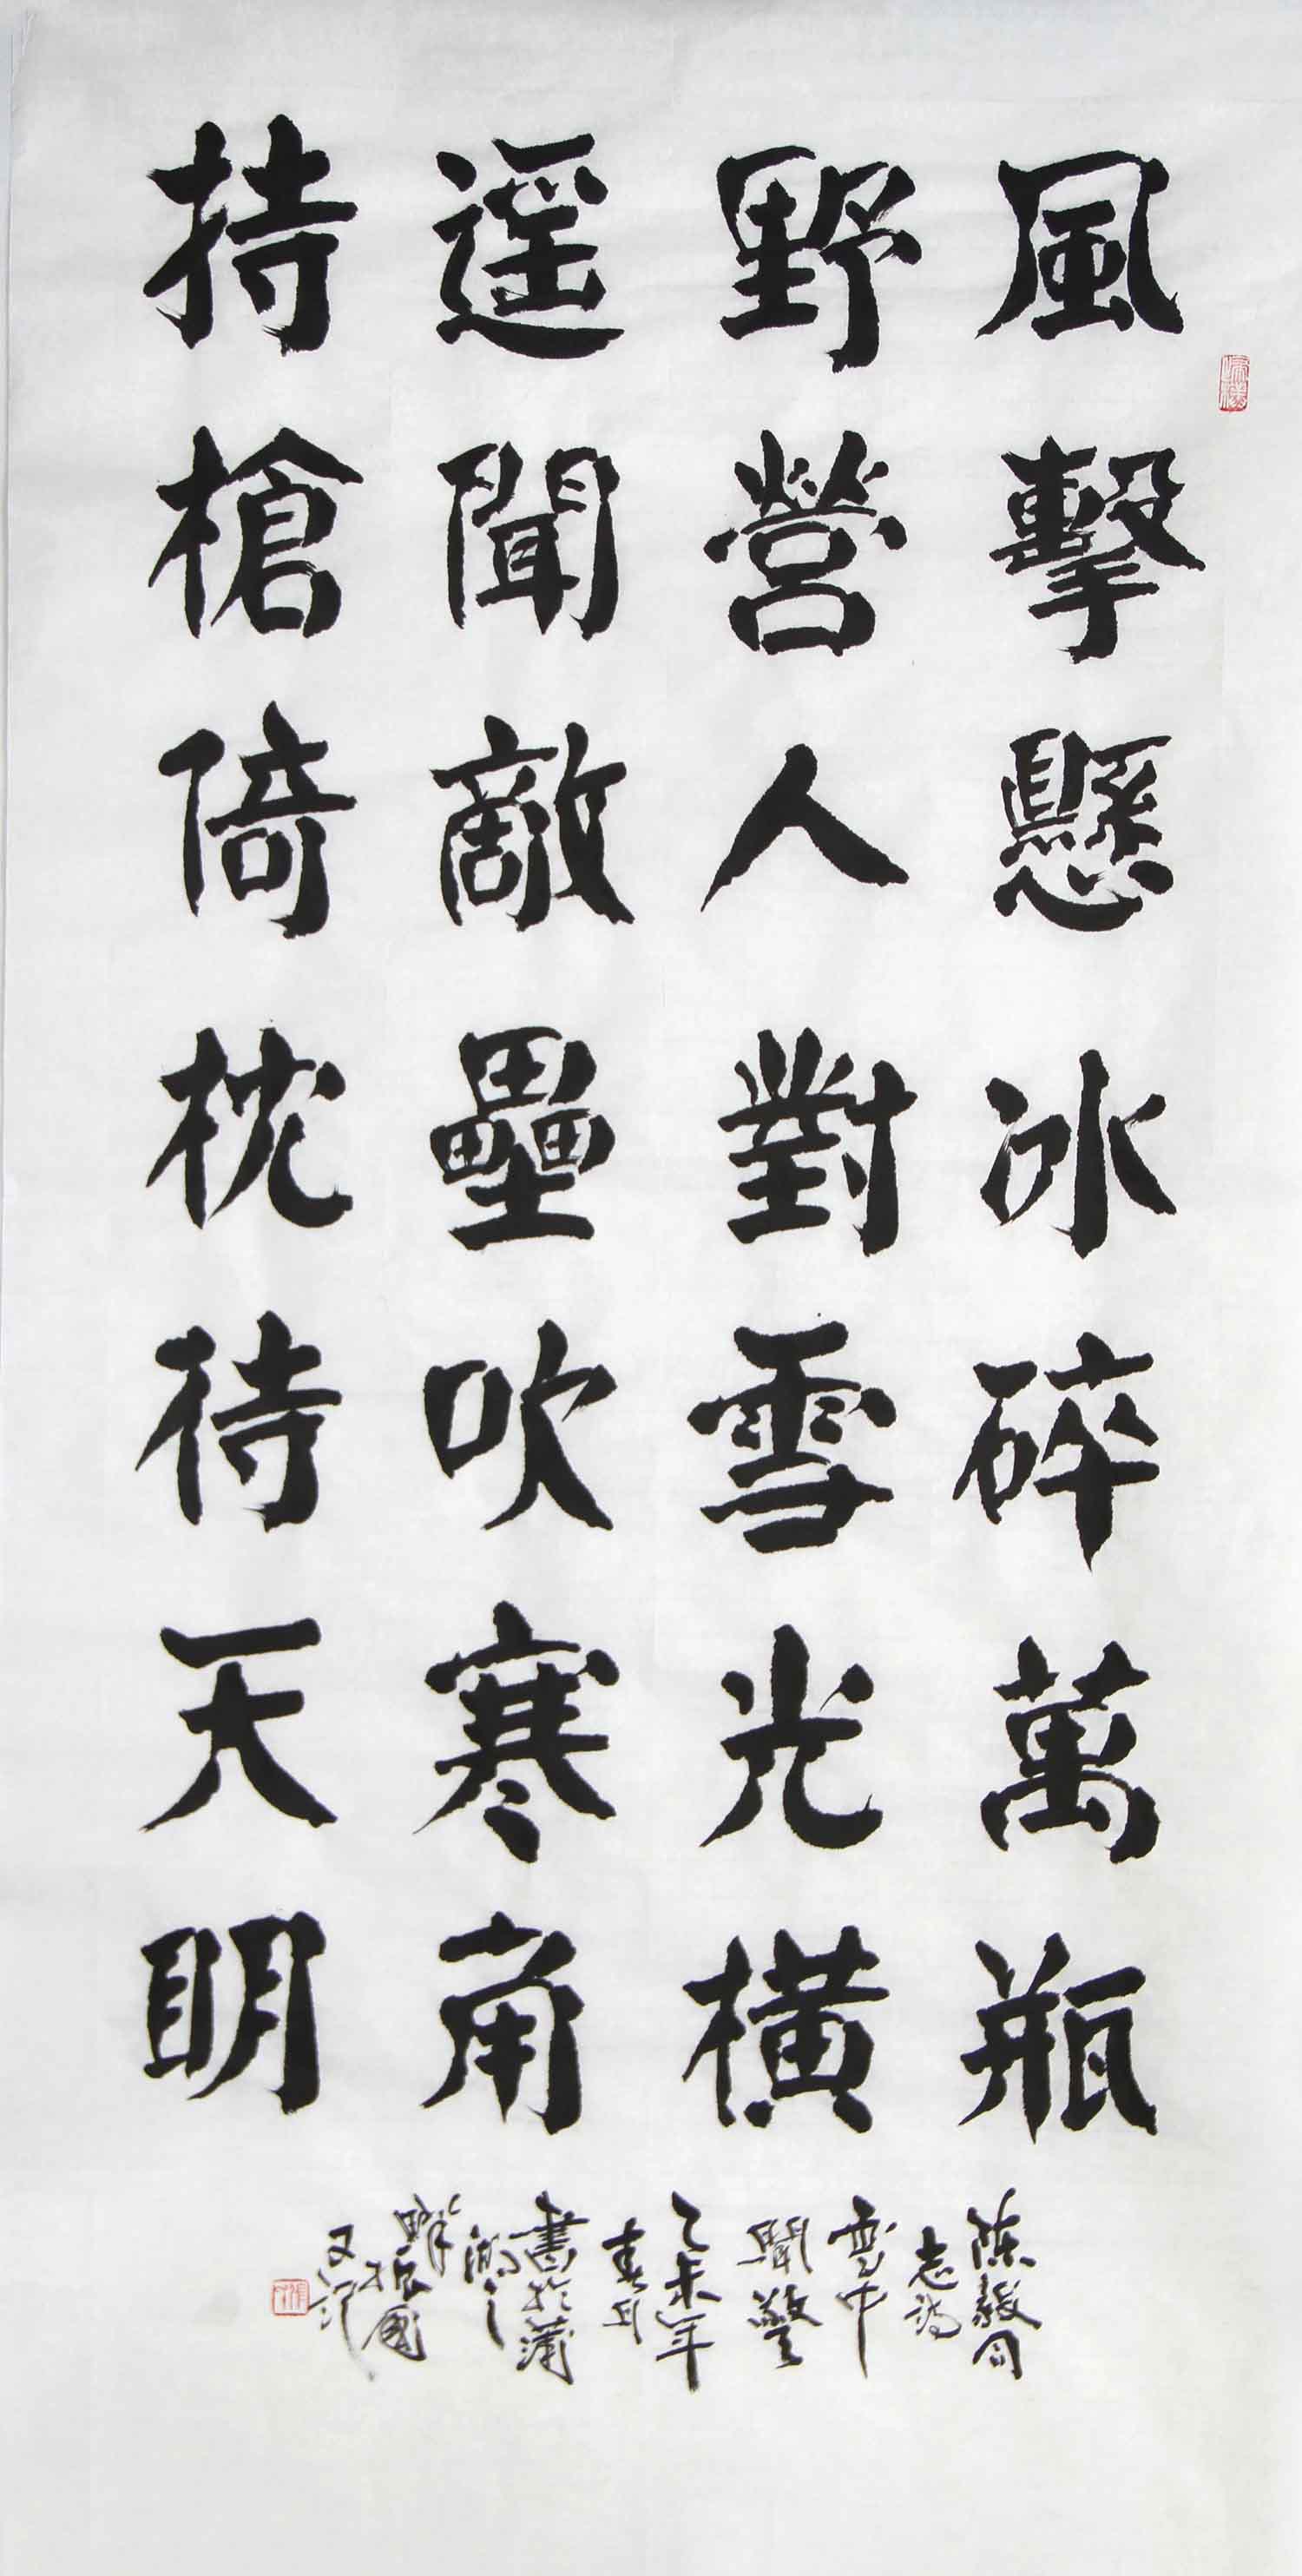 風擊懸冰碎萬瓶
野營人對雪光橫
遥聞敵壘吹寒角
持槍倚枕待天明
陈毅同
志詩
雪中
聞警
乙未年
春月
書於蒲
湖之
畔振國
又記